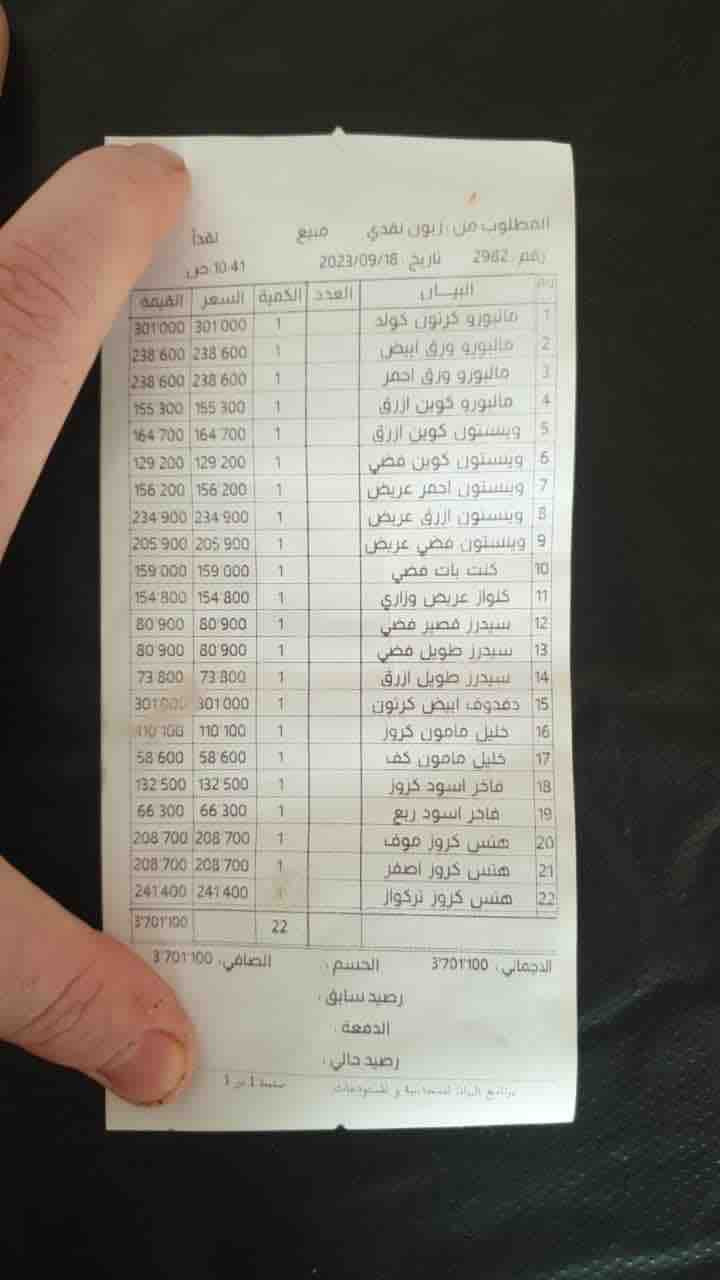 المطلوب من: زبون نقدي مبيع نقداً
رقم: 2982 تاريخ: 2023/09/18 10:41 ص
البيـــان العدد الكمية السعر القيمة
1 مالبورو كرتون كولد 1 301'000 301'000
2 مالبورو ورق ابيض 1 238'600 238'600
3 مالبورو ورق احمر 1 238'600 238'600
4 مالبورو كوين ازرق 1 155'300 155'300
5 وينستون كوين ازرق 1 164'700 164'700
6 وينستون كوين فضي 1 129'200 129'200
7 وينستون احمر عريض 1 156'200 156'200
8 وينستون ازرق عريض 1 234'900 234'900
9 وينستون فضي عريض 1 205'900 205'900
10 كنت بات فضي 1 159'000 159'000
11 كلواز عريض وزاري 1 154'800 154'800
12 سيدرز قصير فضي 1 80'900 80'900
13 سيدرز طويل فضي 1 80'900 80'900
14 سيدرز طويل ازرق 1 73'800 73'800
15 دفدوف ابيض كرتون 1 301'000 301'000
16 خليل مامون كروز 1 110'100 110'100
17 خليل مامون كف 1 58'600 58'600
18 فاخر اسود كروز 1 132'500 132'500
19 فاخر اسود ربع 1 66'300 66'300
20 هنس كروز موف 1 208'700 208'700
21 هنس كروز اصفر 1 208'700 208'700
22 هنس كروز تركواز 1 241'400 241'400
22 3'701'100
الاجمالي: 3'701'100 الحسم: الصافي: 3'701'100
رصيد سابق:
الدفعة:
رصيد حالي:
برنامج البيان للمحاسبة و المستودعات صفحة 1 من 1